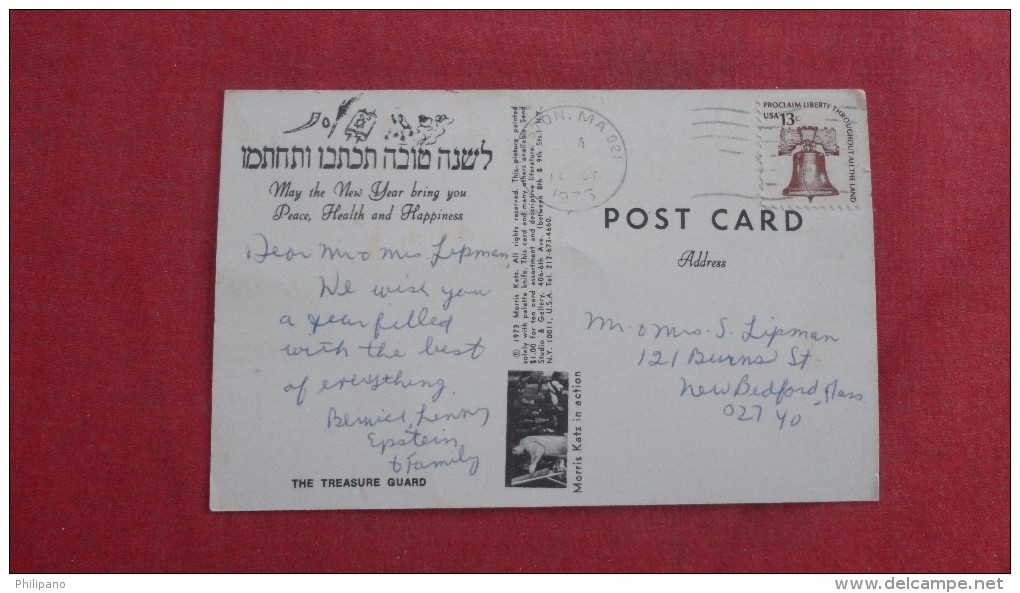 לשנה טובה תכתבו ותחתמו
May the New Year bring you
Peace, Health and Happiness
Dear Mr & Mrs. Lipman,
We wish you
a year filled
with the best
of everything.
Lenny
Epstein
& Family
THE TREASURE GUARD
© 1973 Morris Katz. All rights reserved. This picture painted
solely with palette knife. This card and many others available. Send
$1.00 for ten card assortment and descriptive literature.
Studio & Gallery, 406-6th Ave. (between 8th & 9th Sts.) N.Y.
N.Y. 10011, U.S.A. Tel. 212-673-4660.
Morris Katz in action
ON, MA 021
PROCLAIM LIBERTY THROUGHOUT ALL THE LAND
USA 13c
POST CARD
Address
Mr. & Mrs. S. Lipman
121 Burns St
New Bedford, Mass.
02740
Philipano
www.delcampe.net